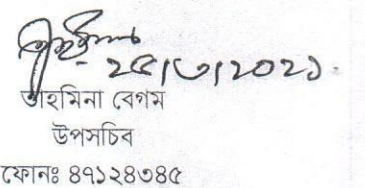 ২৫/৩/২০২১
তাহমিনা বেগম
উপসচিব
ফোনঃ ৪৭১২৪৩৪৫